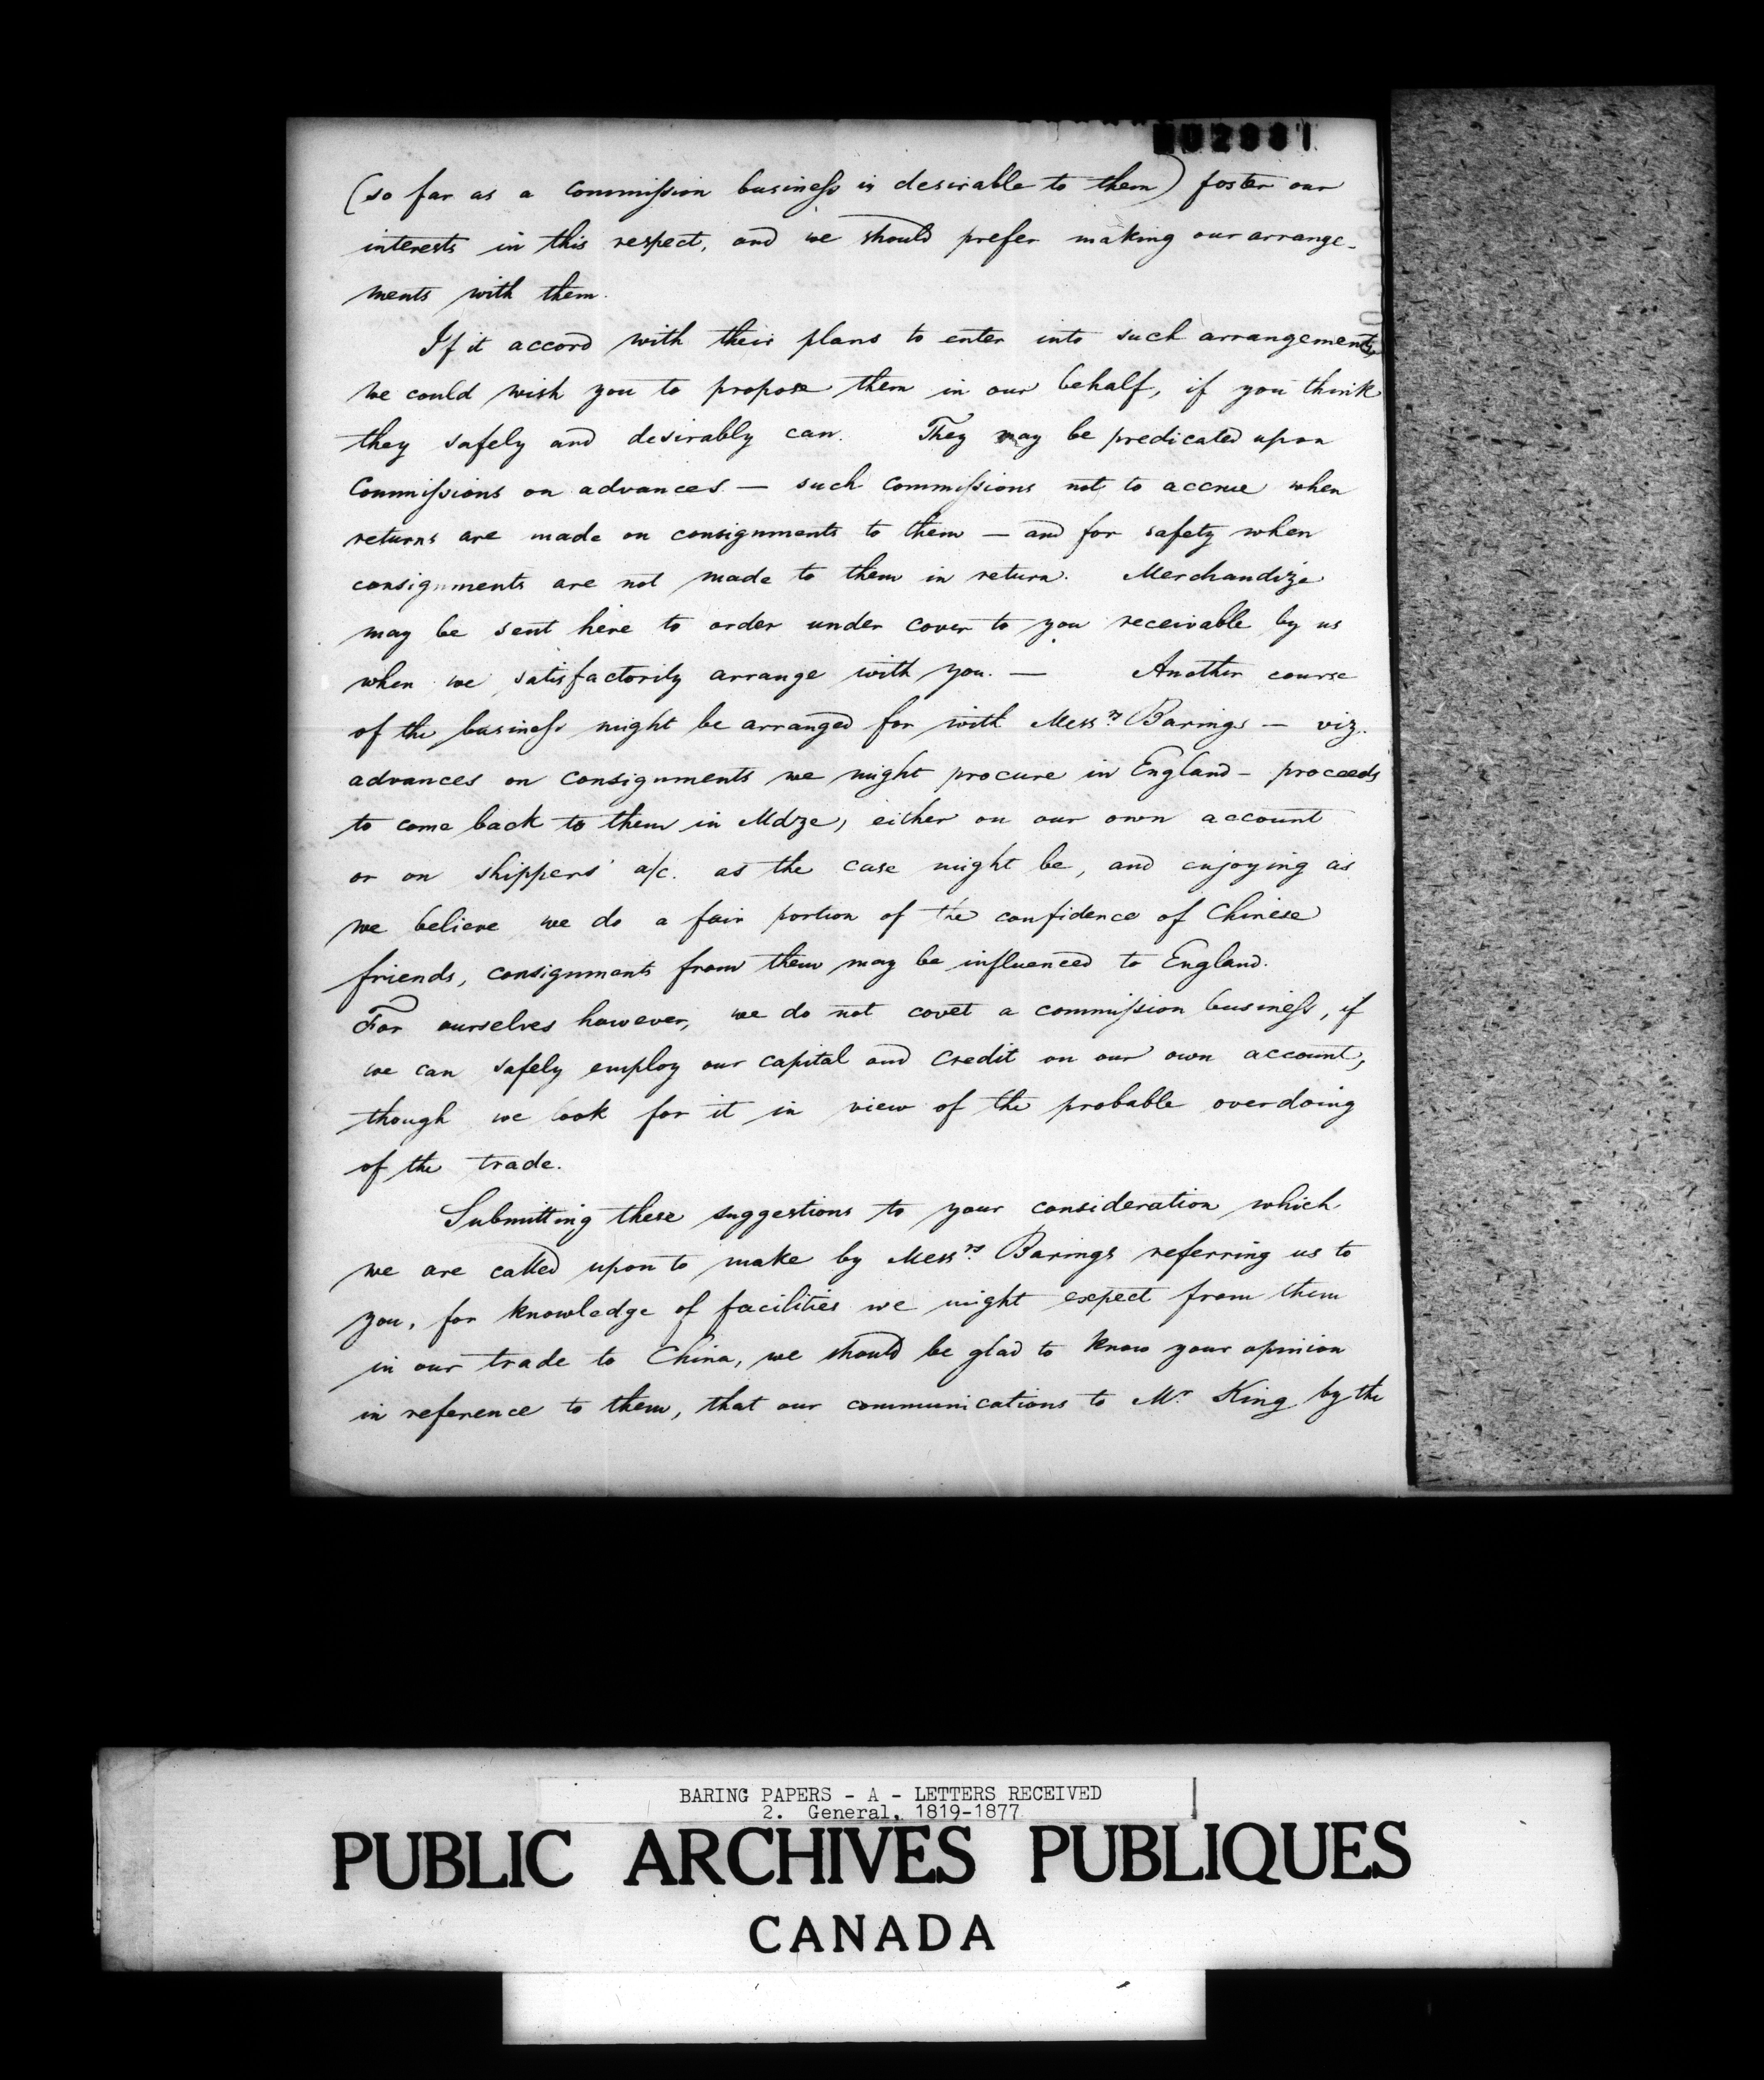 (so far as a commission business is desirable to them) foster our
interests in this respect, and we should prefer making our arrange-
ments with them.
If it accord with their plans to enter into such arrangements,
we could wish you to propose them in our behalf, if you think
they safely and desirably can. They may be predicated upon
Commissions on advances — such commissions not to accrue when
returns are made on consignments to them — and for safety when
consignments are not made to them in return. Merchandize
may be sent here to order under cover to you receivable by us
when we satisfactorily arrange with you. — Another course
of the business might be arranged for with Messrs Barings — viz.
advances on consignments we might procure in England — proceeds
to come back to them in Mdze, either on our own account
or on shippers' a/c. as the case might be, and enjoying as
we believe we do a fair portion of the confidence of Chinese
friends, consignments from them may be influenced to England.
For ourselves however, we do not covet a commission business, if
we can safely employ our capital and credit on our own account,
though we look for it in view of the probable overdoing
of the trade.
Submitting these suggestions to your consideration which
we are called upon to make by Messrs Barings referring us to
you, for knowledge of facilities we might expect from them
in our trade to China, we should be glad to know your opinion
in reference to them, that our communications to Mr. King by the
BARING PAPERS - A - LETTERS RECEIVED
2. General, 1819-1877
PUBLIC ARCHIVES PUBLIQUES
CANADA